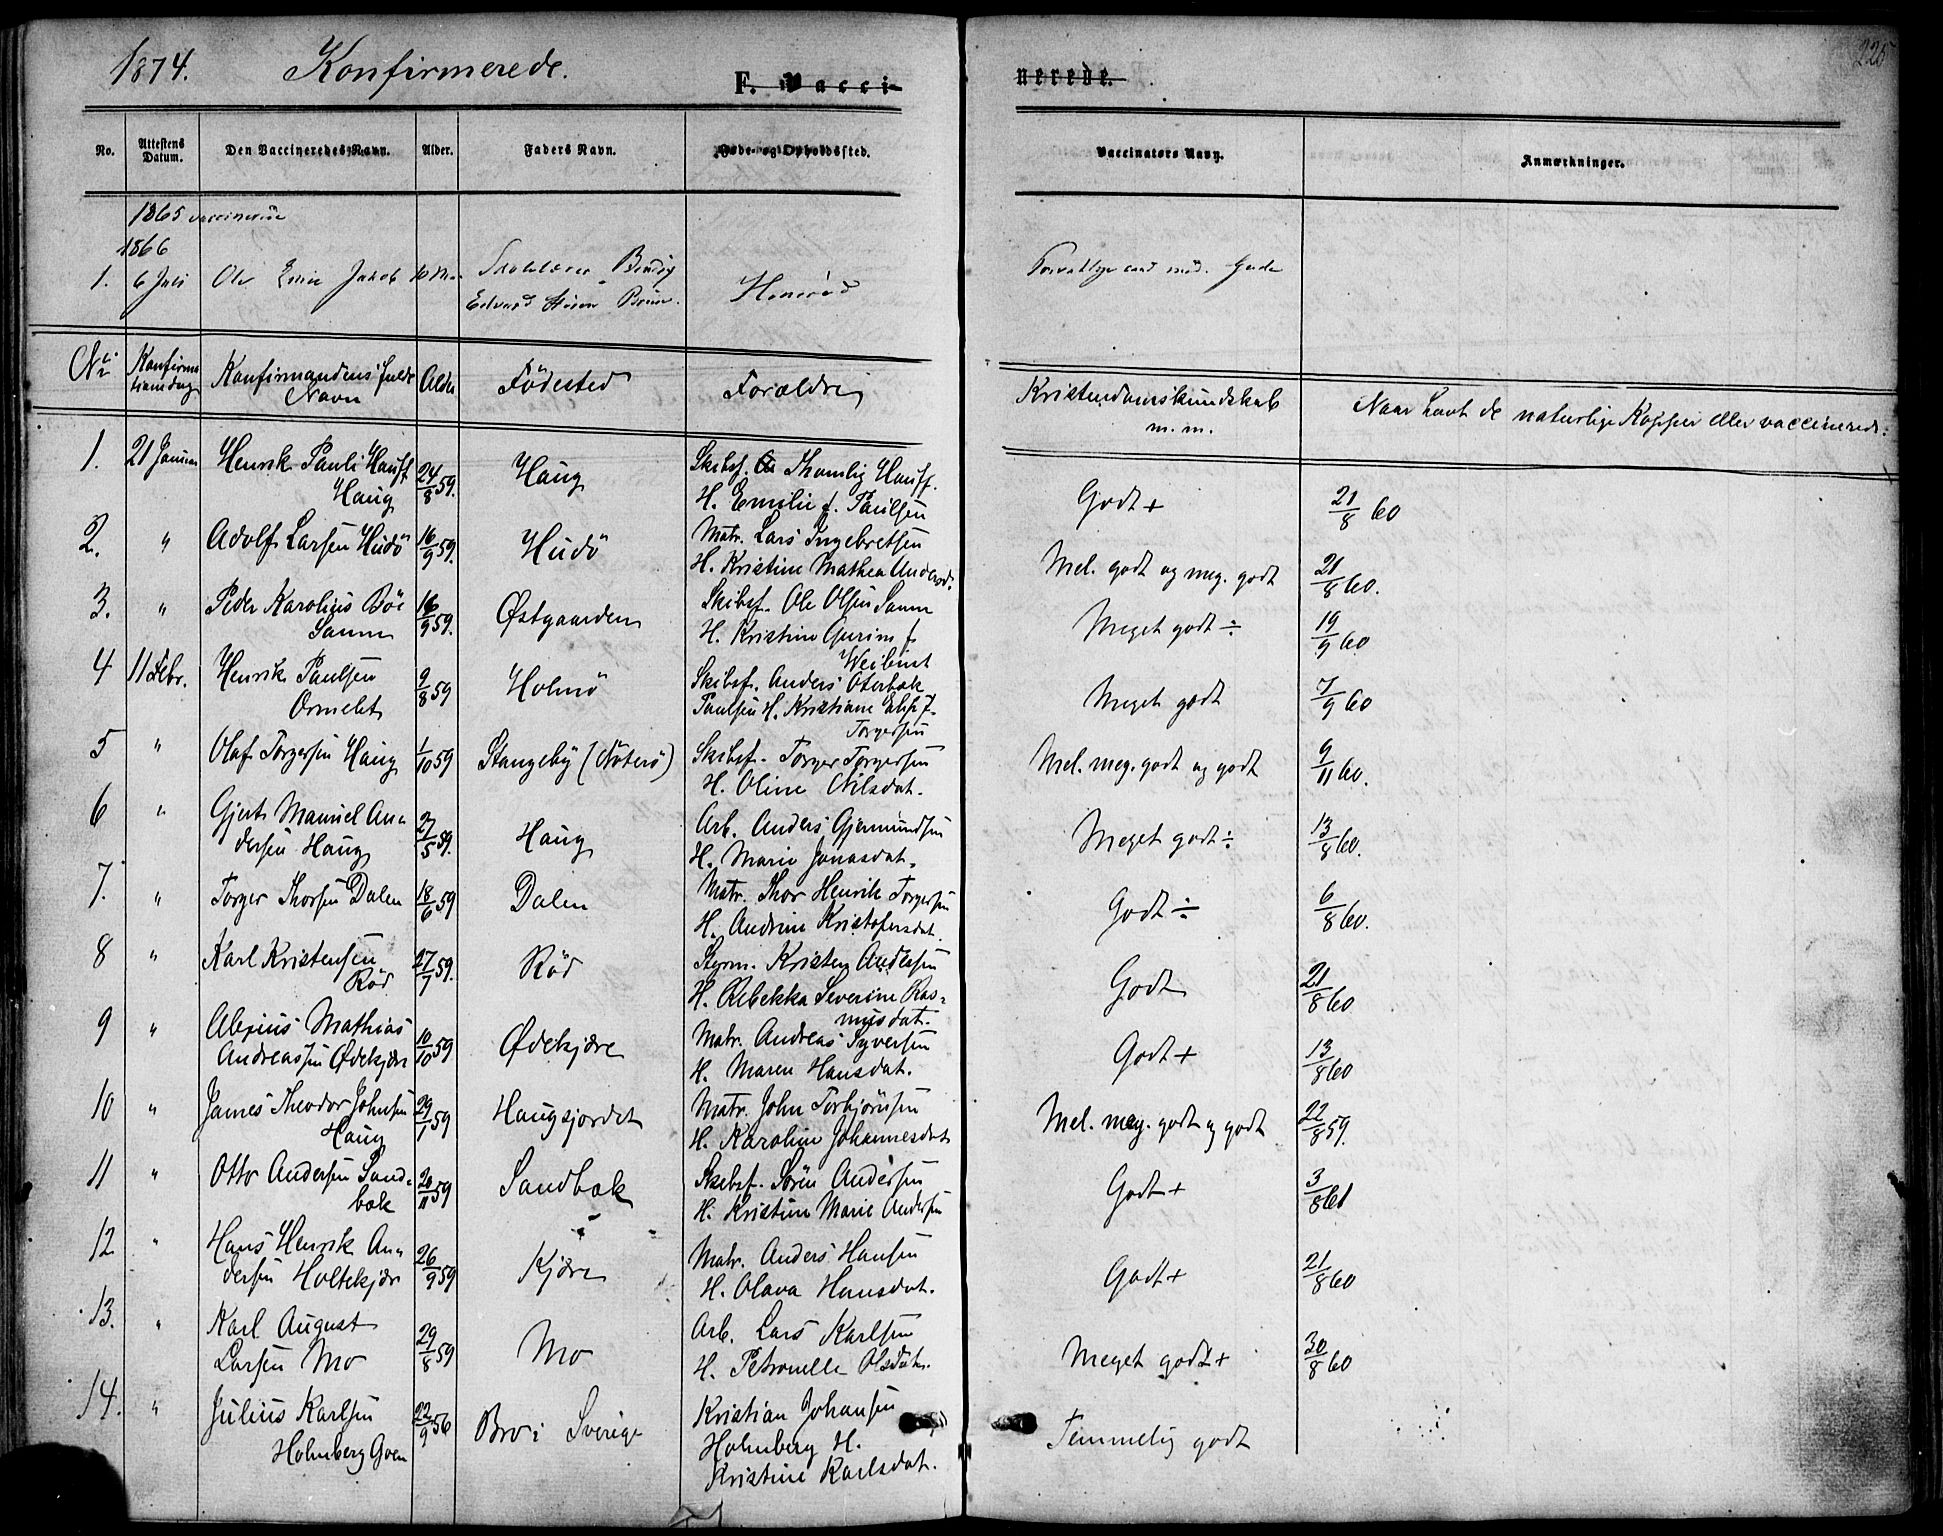 1874. Konfirmerede.
F. Vacci- nerede.
225
No. Attestens Datum. Den Vaccineredes Navn. Alder. Faders Navn. Føde- og Opholdssted. Vaccinators Navn. Anmærkninger.
1865 vaccinerede
1866
1. 6 Juli Ole Jakob
Edvard
No Konfirmationsdag Konfirmandens fulde Navn Alder Födested Forældre Kristendomskundskab m.m. Naar havt de naturlige Kopper eller vaccinerede.
1. 21 Januar Henrik Pauli Hauff Haug 24/8 59. Haug Skibsf. Thomlig Hauff.
H. Emilie f. Paulsen Godt + 21/8 60
2. " Adolf Larsen Hudö 16/9 59. Hudö Matr. Lars Ingebretsen
H. Kristine Mathea Andersd. Mel. godt og meg. godt 21/8 60.
3. " Peder Karolius Böe Sanne 16/9 59. Østgaarden Skibsf. Ole Olsen Sanne
H. Kristine Gurine f. Weibust Meget godt ÷ 19/9 60
4 11 Febr. Henrik Paulsen Ormelet 9/8 59 Holmö Skibsf. Anders Oterbæk
Paulsen H. Kristiane f. Torgersen Meget godt 7/9 60
5 " Olaf Torgersen Haug 1/10 59 Stangeby (Nöterö) Skibsf. Torger Torgersen
H. Oline Nilsdat. Mel. meg. godt og godt 9/11 60.
6 " Gjert Manuel Andersen Haug 27/5 59. Haug Arb. Anders Gjermundsen
H. Marie Jonasdat. Meget godt ÷ 13/8 60.
7. " Torger Thorsen Dalen 18/6 59 Dalen Matr. Thor Henrik Torgersen
H. Andrine Kristofersdat. Godt ÷ 6/8 60.
8 " Karl Kristensen Röd 27/7 59. Röd Styrm. Kristen Andersen
H. Rebekka Severine Rasmusdat. Godt 21/8 60
9 " Alexius Mathias Andreassen Ødekjær 10/10 59 Ødekjære Matr. Andreas Syversen
H. Maren Hansdat. Godt + 13/8 60
10 " James Theodor Johnsen Haug 29/1 59 Haugsjordet Matr. John Torbjörnsen
H. Karoline Johannesdat Mel. meg. godt og godt 22/8 59.
11 " Otto Andersen Sandbæk 20/11 59 Sandbæk Skibsf. Sören Andersen
H. Kristine Marie Andersen Godt + 3/8 61
12 " Hans Henrik Andersen Holtekjær 26/9 59 Kjære Matr. Anders Hansen
H. Olava Hansdat. Godt + 21/8 60
13. " Karl August Larsen Mo 29/8 59 Mo Arb. Lars Karlsen
H. Petronelle Olsdat. Meget godt + 30/8 60
14. " Julius Karlsen Holmberg Goen 22/9 56 Bro i Sverige Kristian Johansen
Holmberg H.
Kristine Karlsdat. Temmelig godt